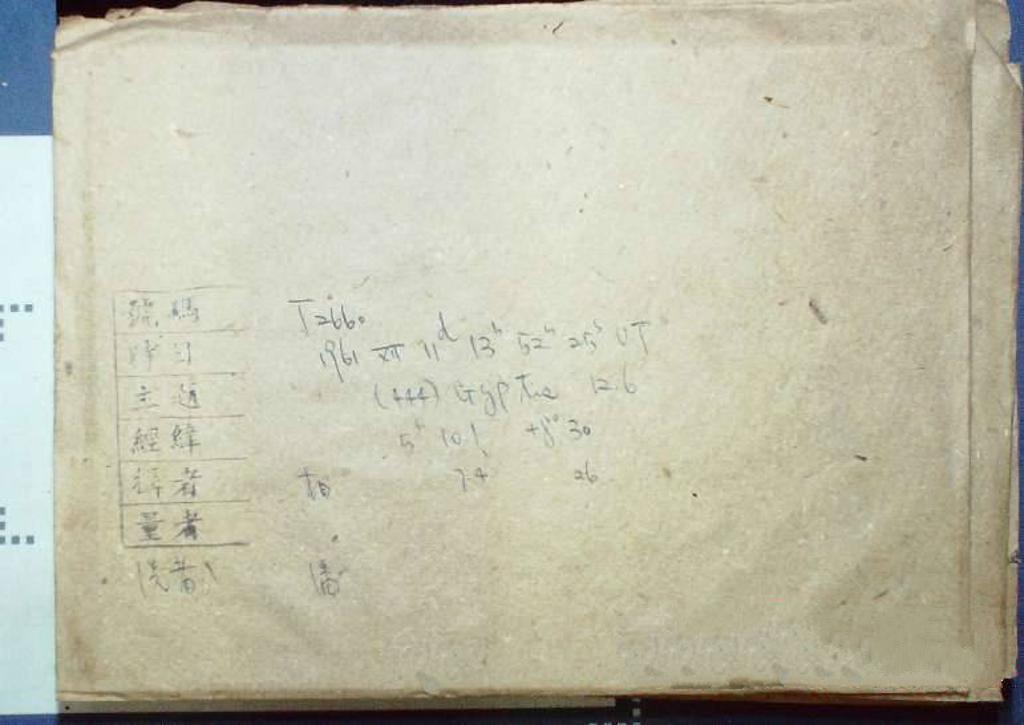 號碼 T2660
時刻 1961 XII 11d 13h 52m 25s UT
主題 (444) Gyptis 12.6
經緯 5h 10.1 +8° 30
7.4 26
量者
洗者 潘